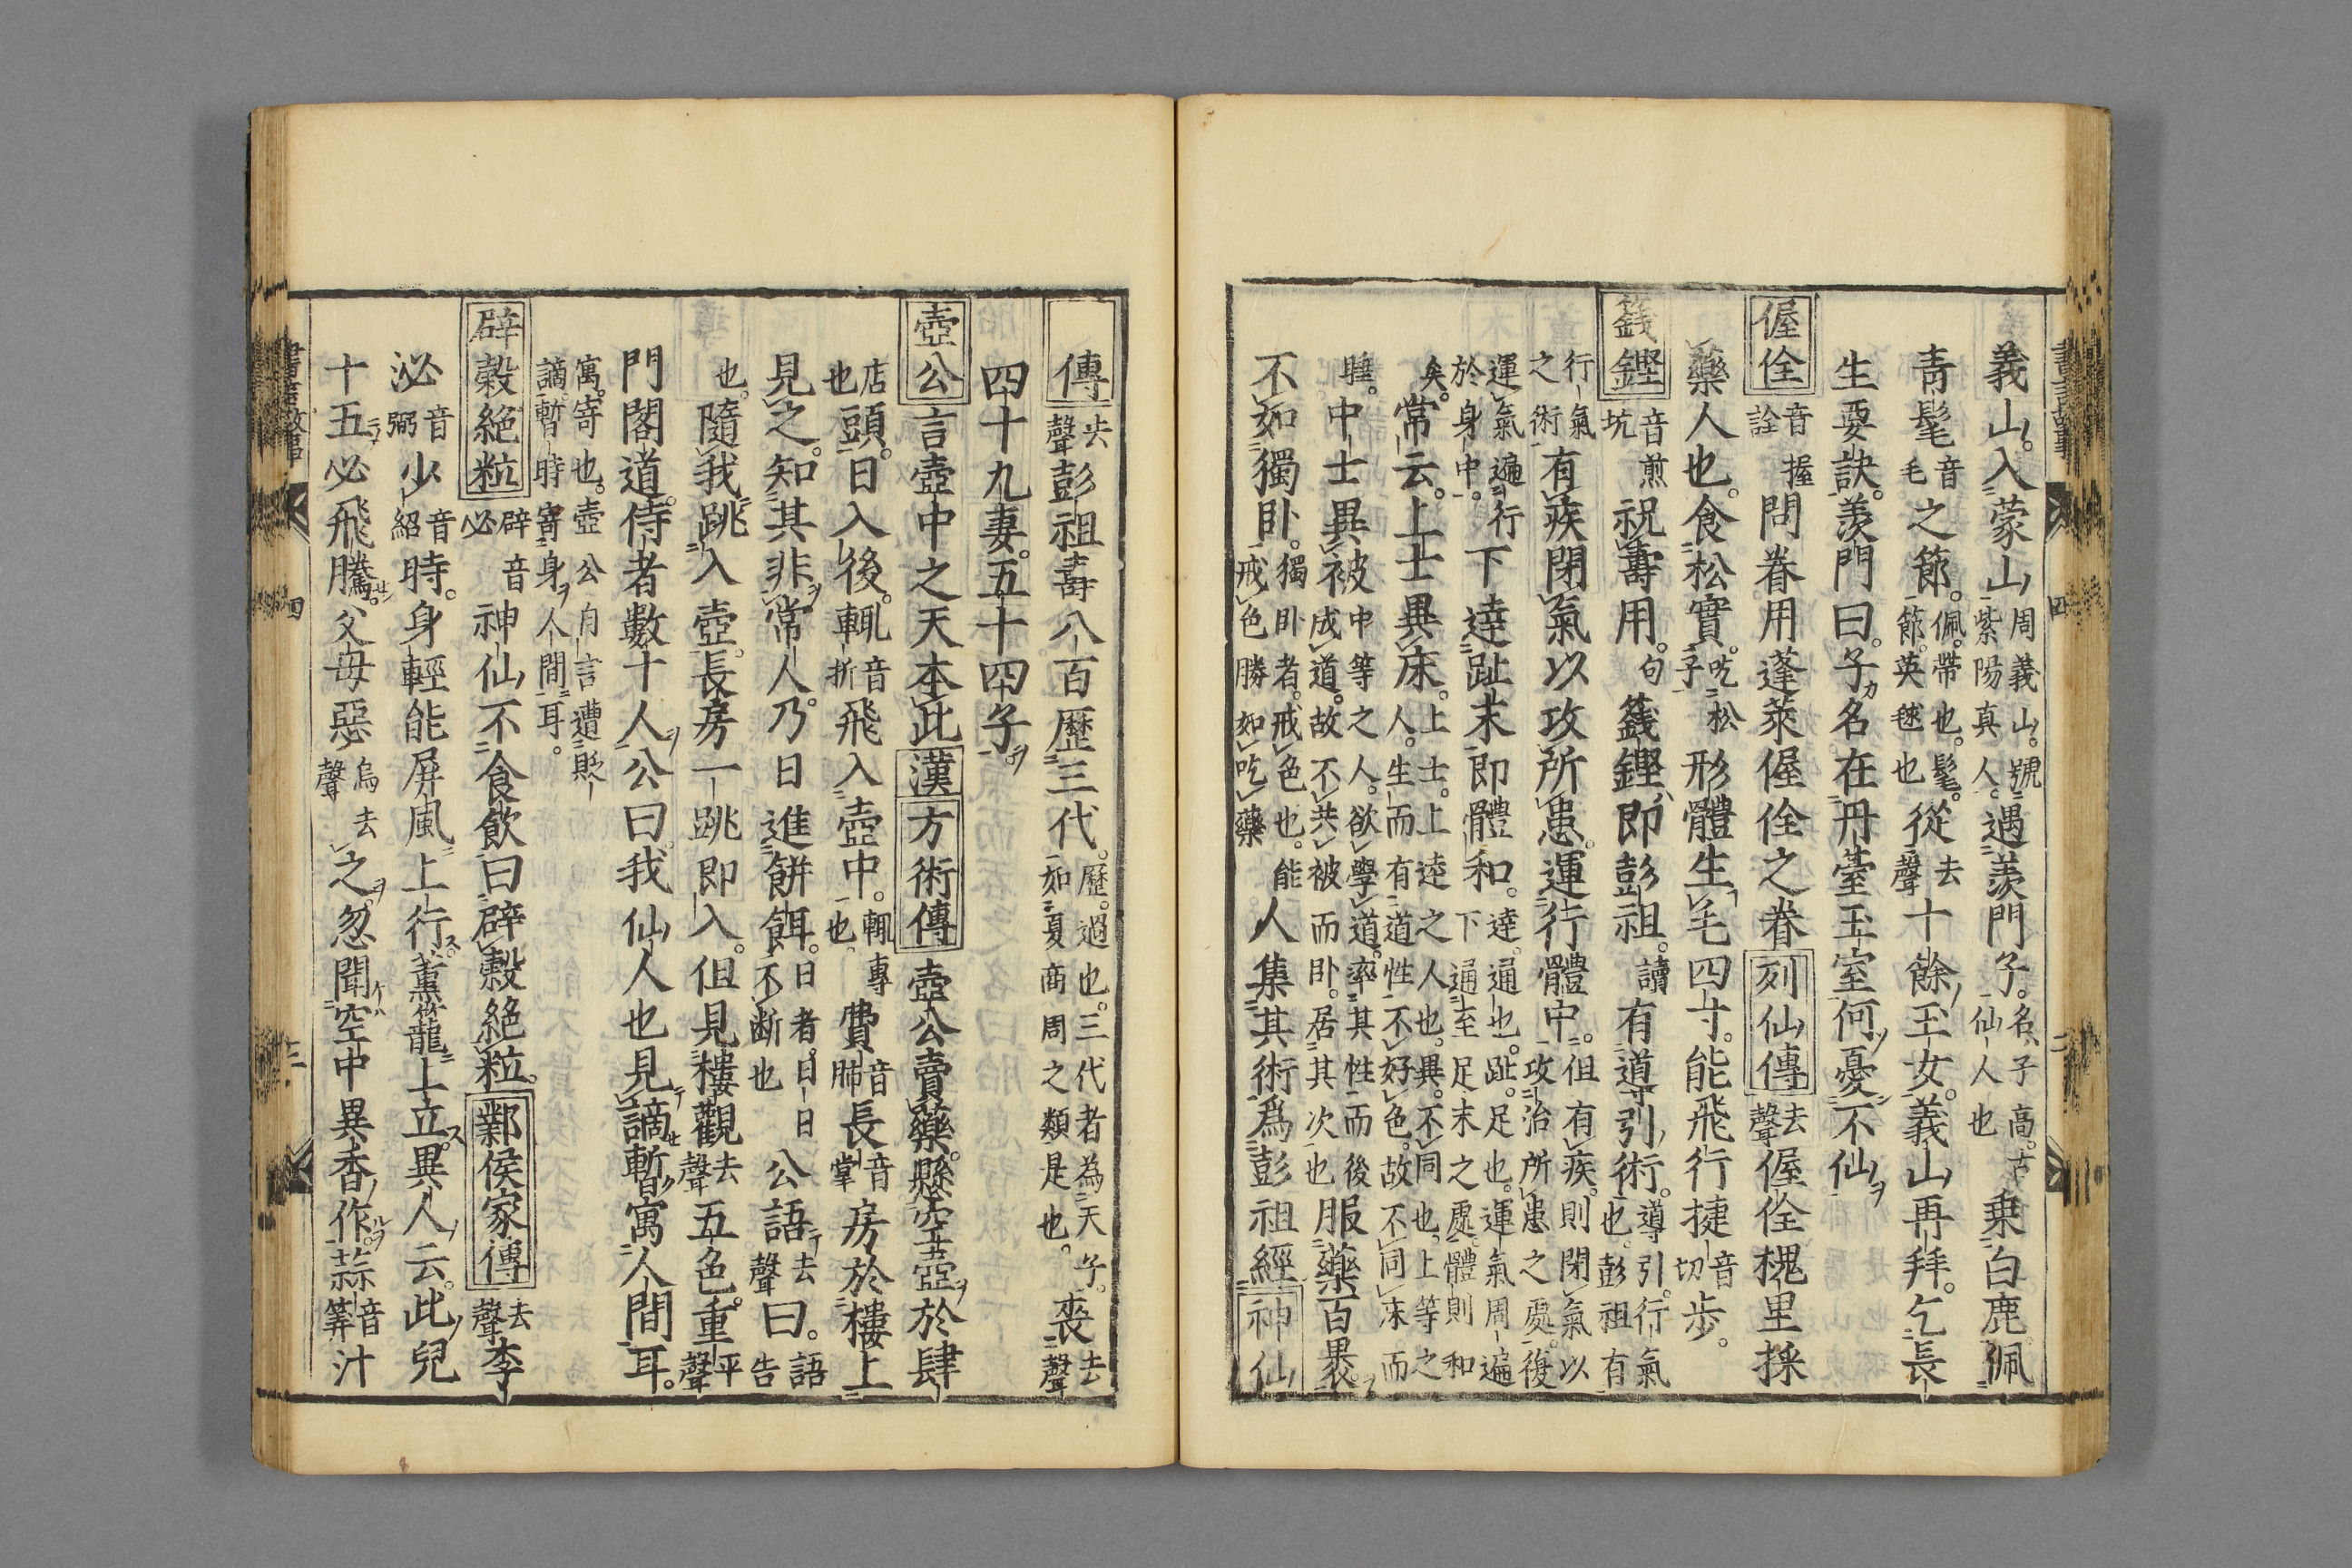 義山。入蒙山周義山。號紫陽真人。遇羨門子。名子高。古仙人也乗白鹿。佩
青髦音毛之節。佩。帶也。髦。節。英毬也從去聲十餘玉女。義山再拜。乞長
生要訣。羨門曰。子名在丹臺玉室何憂不仙
偓佺音握詮問眷用蓬萊偓佺之眷列仙傳去聲偓佺槐里採
藥人也。食松實。吃松子形體生毛四寸。能飛行捷音切歩。
籛鏗音煎坑祝壽用。句籛鏗即彭祖。讀有導引術。導引。行氣也。彭祖有
行氣之術有疾閉氣以攻所患。運行體中。但有疾。則閉氣以攻治所患之處。復
運氣遍行於身中。下達趾末即體和。達。通也。趾。足也。運氣周遍下通至足末之處。體則和
矣。常云。上士異床。上士。上達之人也。異。不同也。上等之人。生而有道性不好色。故不同床而
睡。中士異被中等之人。欲學道。率其性而後成道。故不共被而卧。居其次也服藥百裹
不如獨卧。獨卧者。戒色也。能戒色勝如吃藥人集其術爲彭祖經神仙
傳去聲彭祖壽八百歷三代。歷。過也。三代者為天子。如夏商周之類是也。喪去聲
四十九妻。五十四子。
壺公言壺中之天本此漢方術傳壺公賣藥。懸空壺於肆
店也頭。日入後。輒音折飛入壺中。輒。專也。費音肺長音掌房於樓上
見之。知其非常人。乃日進餅餌。日者。日日不断也公語去聲曰。語告
也。隨我跳入壺。長房一跳即入。但見樓觀去聲五色。重平聲
門閣道。侍者數十人公曰我仙人也見謫暫寓人間耳。
寓。寄也。壺公自言遭貶謫。暫時寄身人間耳。
辟穀絕粒辟音必神仙不食飲曰辟穀絕粒。鄴侯家傳去聲李
泌音弼少音紹時。身輕能屏風上行。薫籠上立。異人云。此兒
十五必飛騰。父母惡烏去聲之。忽聞空中異香作。蒜音筭汁